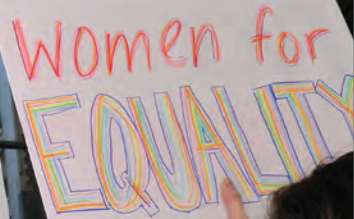 Women for
EQUALITY